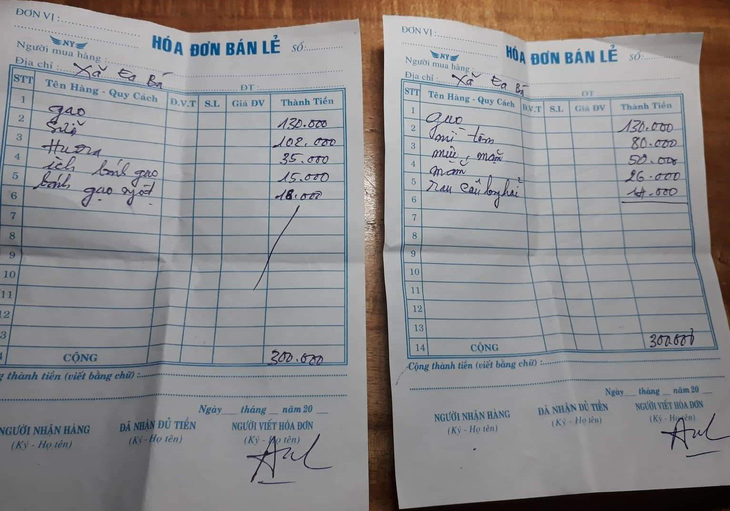 ĐƠN VỊ :
NY
HÓA ĐƠN BÁN LẺ
SỐ
Người mua hàng
Địa chỉ : Xã Ea Bá
ĐT :
STT Tên Hàng - Quy Cách Đ.V.T S.L Giá ĐV Thành Tiền
1 gạo 130.000
2 Sữa 102.000
3 Hương 35.000
4 ích bánh gạo 15.000
5 bánh gạo ngọt 18.000
6
7
8
9
10
11
12
13
14 CỘNG 300.000
Cộng thành tiền (viết bằng chữ) :
Ngày tháng năm 20
NGƯỜI NHẬN HÀNG ĐÃ NHẬN ĐỦ TIỀN NGƯỜI VIẾT HÓA ĐƠN
(Ký - Họ tên) (Ký - Họ tên) (Ký - Họ tên)
ĐƠN VỊ :
NY
HÓA ĐƠN BÁN LẺ
SỐ
Người mua hàng
Địa chỉ : Xã Ea Bá
ĐT
STT Tên Hàng - Quy Cách Đ.V.T S.L Giá ĐV Thành Tiền
1 gạo 130.000
2 mì tôm 80.000
3 miến, mắm 50.000
4 mắm 26.000
5 rau câu long hải 14.000
6
7
8
9
10
11
12
13
14 CỘNG 300.000
Cộng thành tiền (viết bằng chữ) :
Ngày tháng năm 20
NGƯỜI NHẬN HÀNG ĐÃ NHẬN ĐỦ TIỀN NGƯỜI VIẾT HÓA ĐƠN
(Ký - Họ tên) (Ký - Họ tên) (Ký - Họ tên)